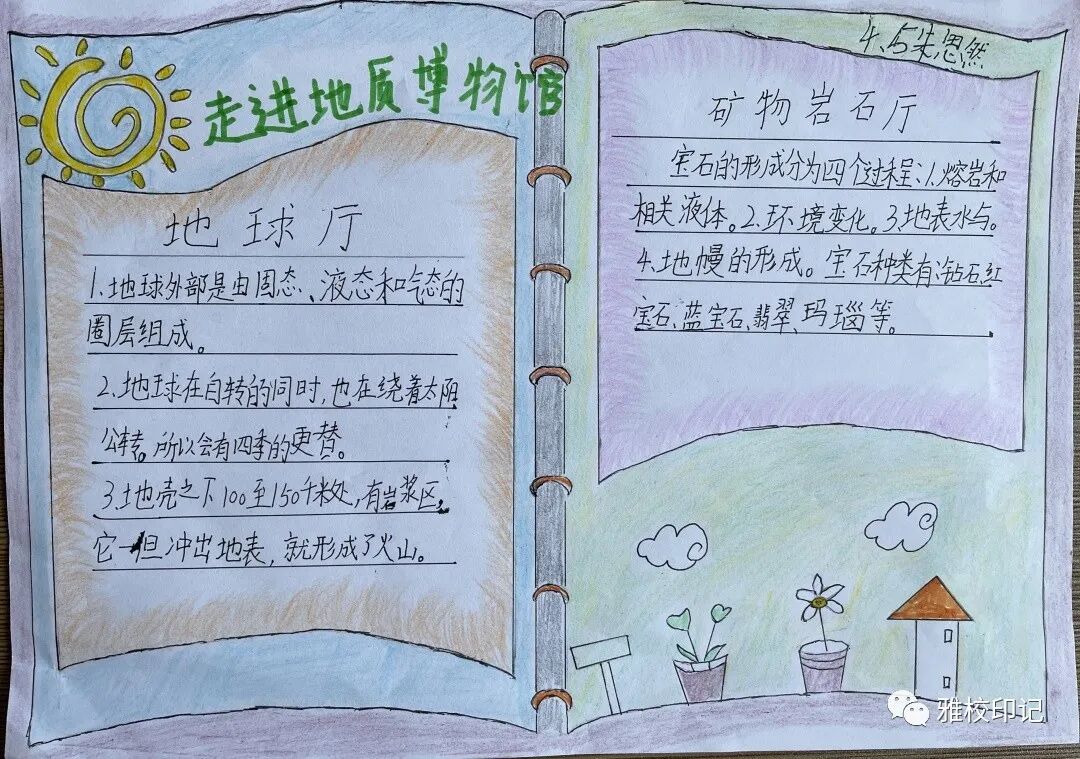 走进地质博物馆
地球厅
1.地球外部是由固态、液态和气态的
圈层组成。
2.地球在自转的同时,也在绕着太阳
公转。所以会有四季的更替。
3.地壳之下100至150千米处,有岩浆区,
它一但冲出地表,就形成了火山。
4、5朱思然
矿物岩石厅
宝石的形成分为四个过程:1.熔岩和
相关液体。2.环境变化。3.地表水与。
4.地幔的形成。宝石种类有:钻石、红
宝石、蓝宝石、翡翠、玛瑙等。
雅校印记